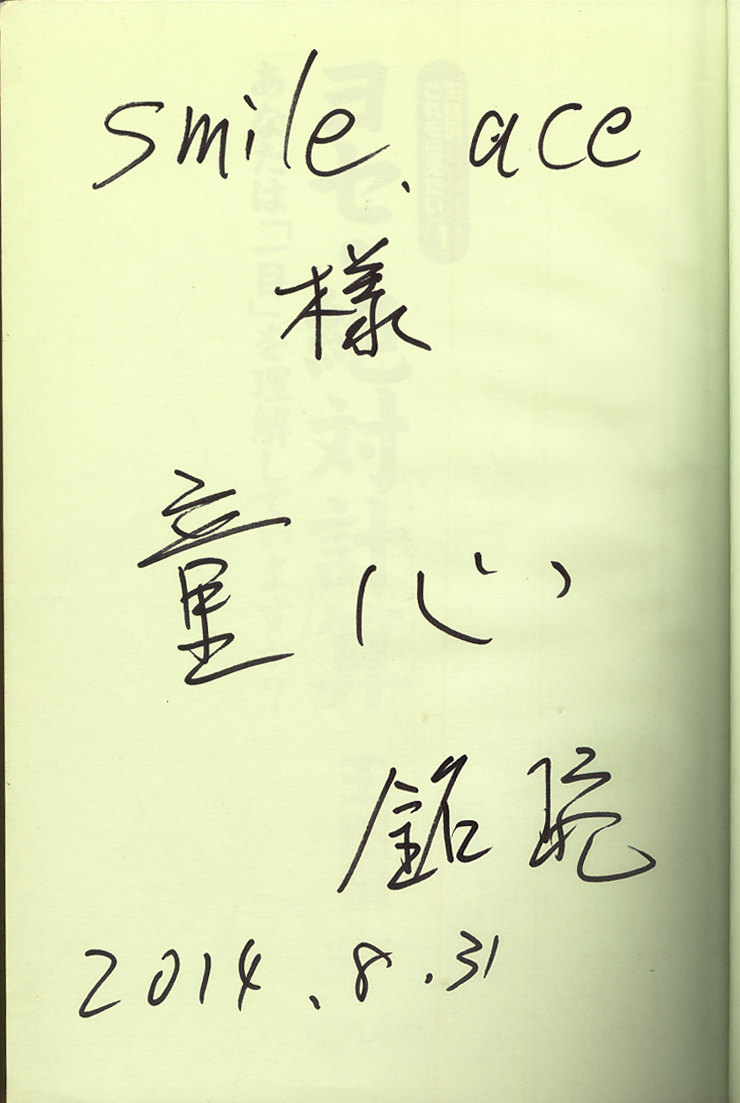 smile. ace
様
童心
銘琬
2014.8.31